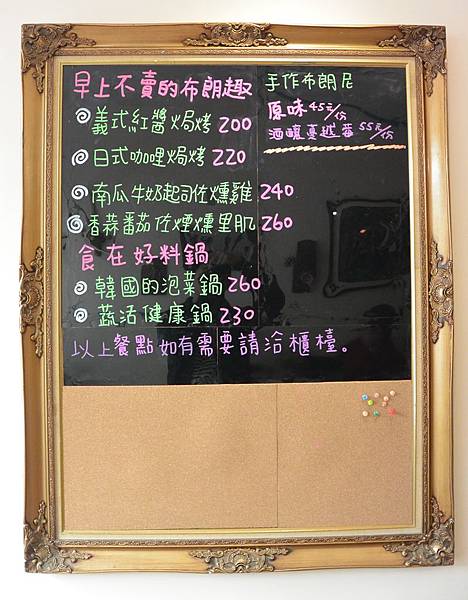 早上不賣的布朗趣
義式紅醬焗烤 200
日式咖哩焗烤 220
南瓜牛奶起司佐燻雞 240
香蒜番茄佐煙燻里肌 260
食在好料鍋
韓國的泡菜鍋 260
蔬活健康鍋 230
以上餐點如有需要請洽櫃檯。
手作布朗尼
原味45元/份
酒釀蔓越莓55元/份